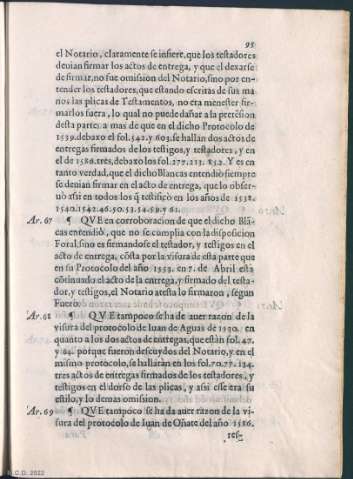 95
el Notario, claramente se infiere, que los testadores
deuian firmar los actos de entrega, y que el dexarse
de firmar, no fue omision del Notario, sino por en-
tender los testadores, que estando escritas de sus ma
nos las plicas de Testamentos, no era menester fir-
marlos fuera, lo qual no puede dañar a la pretēsion
desta parte: a mas de que en el dicho Protocolo de
1539. debaxo el fol. 542. y 603. se hallan dos actos de
entregas firmados de los testigos, y testadores, y en
el de 1580. tres, debaxo los fol. 277. 233. 852. Y es en
tanto verdad, que el dicho Blancas entendiò siempre
se deuian firmar en el acto de entrega, que lo obser-
uò assi en todos los q̄ testificò en los años de 1538.
1540. 1542. 46. 50. 53. 54. 59. y 61.
Ar. 67 ¶ QVE en corroboracion de que el dicho Blā-
cas entendiò, que no se cumplia con la disposicion
Foral, sino es firmandose el testador, y testigos en el
acto de entrega, cōsta por la visura de esta parte que
en su Protocolo del año 1553. en 7. de Abril esta
cōtinuado el acto de la entrega, y firmado del testa-
dor, y testigos, el Notario atesta lo firmaron, segun
Fuero.
Ar. 68 ¶ QVE tampoco se ha de auer razon de la
visura del protocolo de Iuan de Aguas de 1590. en
quanto a los dos actos de entregas, que estàn fol. 47.
y 84. porque fueron descuydos del Notario, y en el
mismo protocolo, se hallaràn en los fol. 70. 77. 134.
tres actos de entregas firmados de los testadores, y
testigos en el dorso de las plicas, y assi esse era su
estilo, y lo demas omision.
Ar. 69 ¶ QVE tampoco se ha de auer razon de la vi-
sura del protocolo de Iuan de Oñate del año 1586.
res-
C.D. 2022